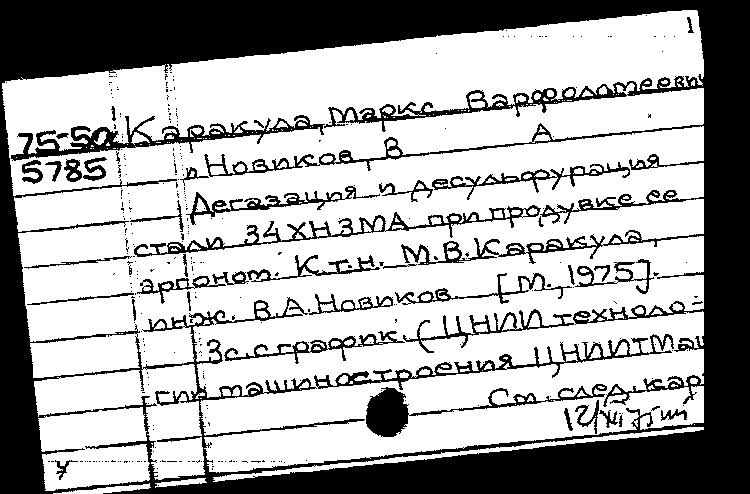 1
75-50 Каракула, Маркс Варфоломееви
5785 и Новиков, В А
Дегазация и десульфурация
стали 34ХН3МА при продувке ее
аргоном. К.т.н. М.В.Каракула,
инж. В.А.Новиков. [М., 1975].
3с. с график. (ЦНИИ техноло-
гии машиностроения ЦНИИТМаш
См. след. кар
12/XII